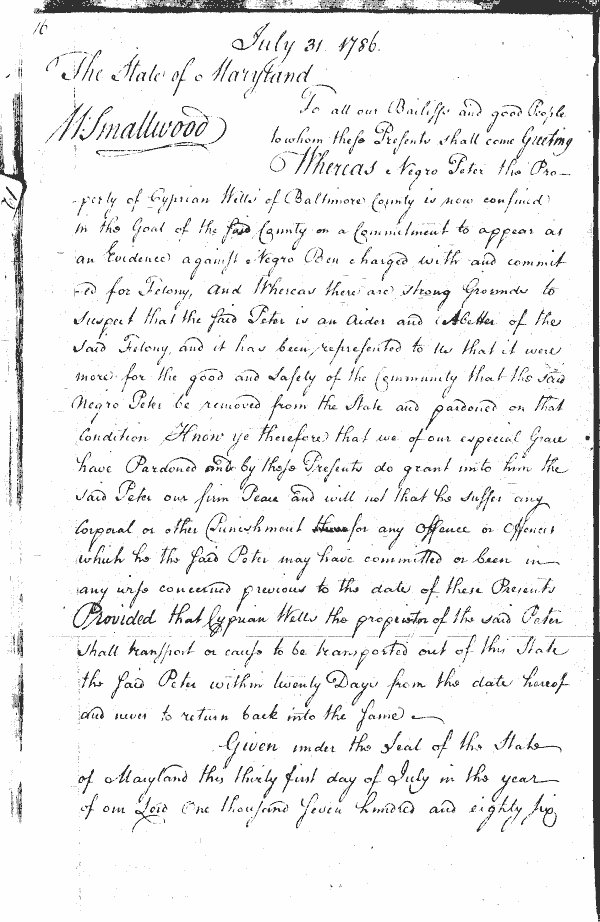 16
July 31. 1786.
The State of Maryland
To all our Bailiffs and good People
W. Smallwood
to whom these Presents shall come Greeting
Whereas Negro Peter the Pro-
perty of Cyprian Wells of Baltimore County is now confined
in the Goal of the said County on a Commitment to appear as
an Evidence against Negro Ben charged with and committ
ed for Felony, And Whereas there are strong Grounds to
suspect that the said Peter is an Aider and Abetter of the
said Felony, and it has been represented to us that it were
more for the good and safety of the Community that the said
Negro Peter be removed from the State and pardoned on that
Condition Know ye therefore that we of our especial Grace
have Pardoned and by these Presents do grant unto him the
said Peter our firm Peace and will not that he suffer any
Corporal or other Punishment for any Offence or Offences
which he the said Peter may have committed or been in
any wise concerned previous to the date of these Presents
Provided that Cyprian Wells the proprietor of the said Peter
shall transport or cause to be transported out of this State
the said Peter within twenty Days from the date hereof
and never to return back into the same
Given under the Seal of the State
of Maryland this thirty first day of July in the year
of our Lord One thousand seven hundred and eighty six